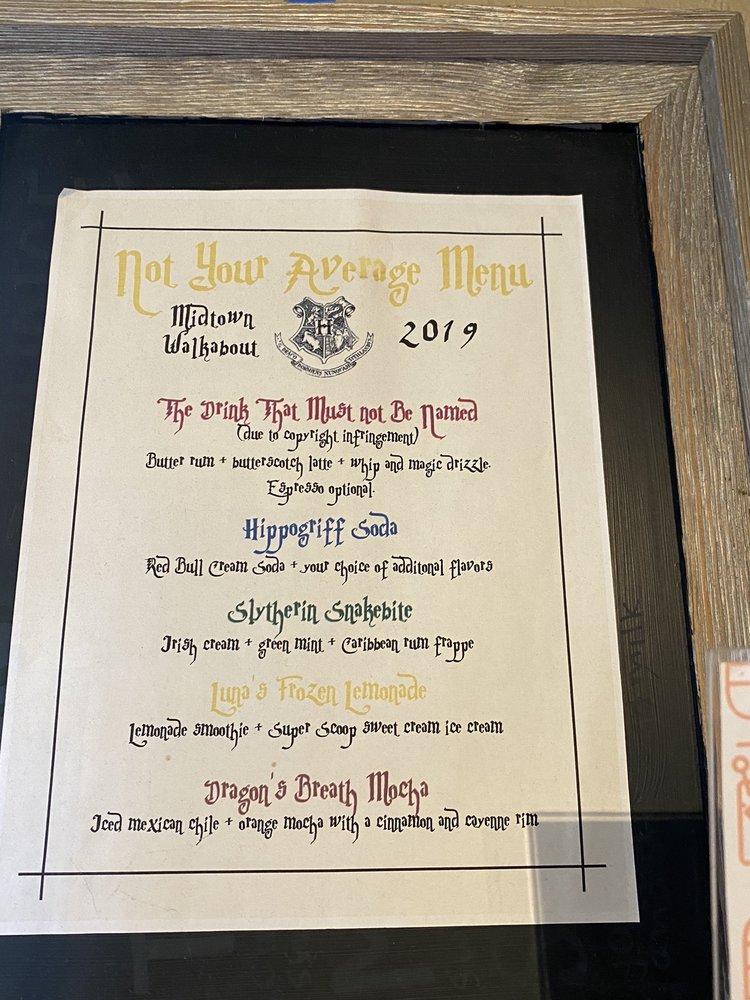 Not Your Average Menu
Midtown
Walkabout
H
2019
The Drink That Must not Be Named
(due to copyright infringement)
Butter rum + butterscotch latte + whip and magic drizzle.
Espresso optional.
Hippogriff Soda
Red Bull Cream Soda + your choice of additonal flavors
Slytherin Snakebite
Irish cream + green mint + Caribbean rum frappe
Luna's Frozen Lemonade
Lemonade smoothie + Super Scoop sweet cream ice cream
Dragon's Breath Mocha
Iced mexican chile + orange mocha with a cinnamon and cayenne rim